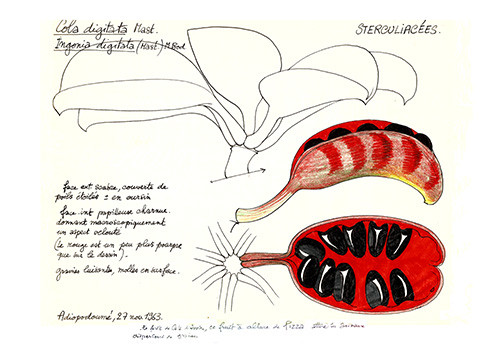 Cola digitata Mast.
Ingonia digitata (Mast.) M. Bod
STERCULIACÉES.
face ext scabre, couverte de
poils étoilés ± en oursin
face int papilleuse charnue.
donnant macroscopiquement
un aspect velouté
(le rouge est un peu plus pourpre
que sur le dessin).
graines luisantes, molles en surface.
Adiopodoumé, 27 nov 1963.
ce fruit a